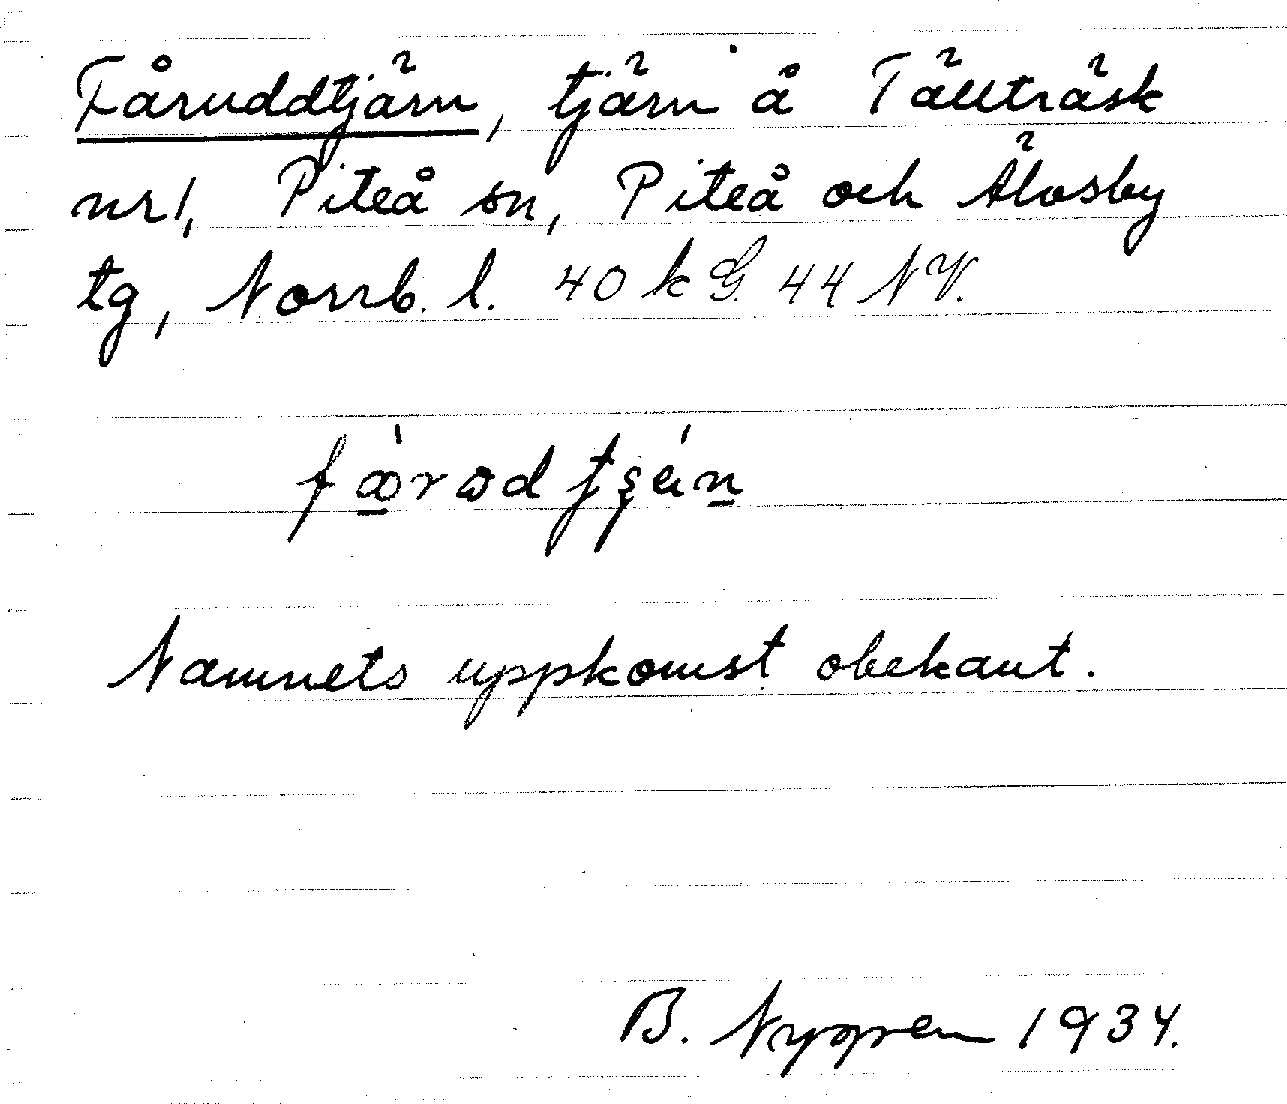 Fåruddtjärn, tjärn å Tällträsk
nr 1, Piteå sn, Piteå och Älvsby
tg, Norrb. l. 40 k G. 44 NV.
Namnets uppkomst obekant.
B. Nygren 1934.